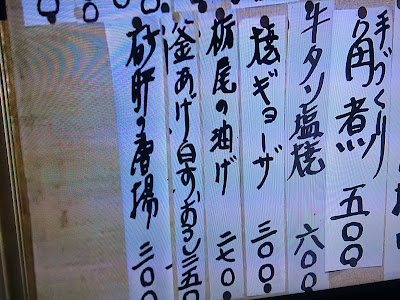 手づくり角煮 五〇〇
牛タン塩焼 六〇〇
焼ギョーザ 三〇〇
栃尾の油げ 二七〇
釜あげ しらすおろし 三五〇
砂肝の唐揚 三〇〇